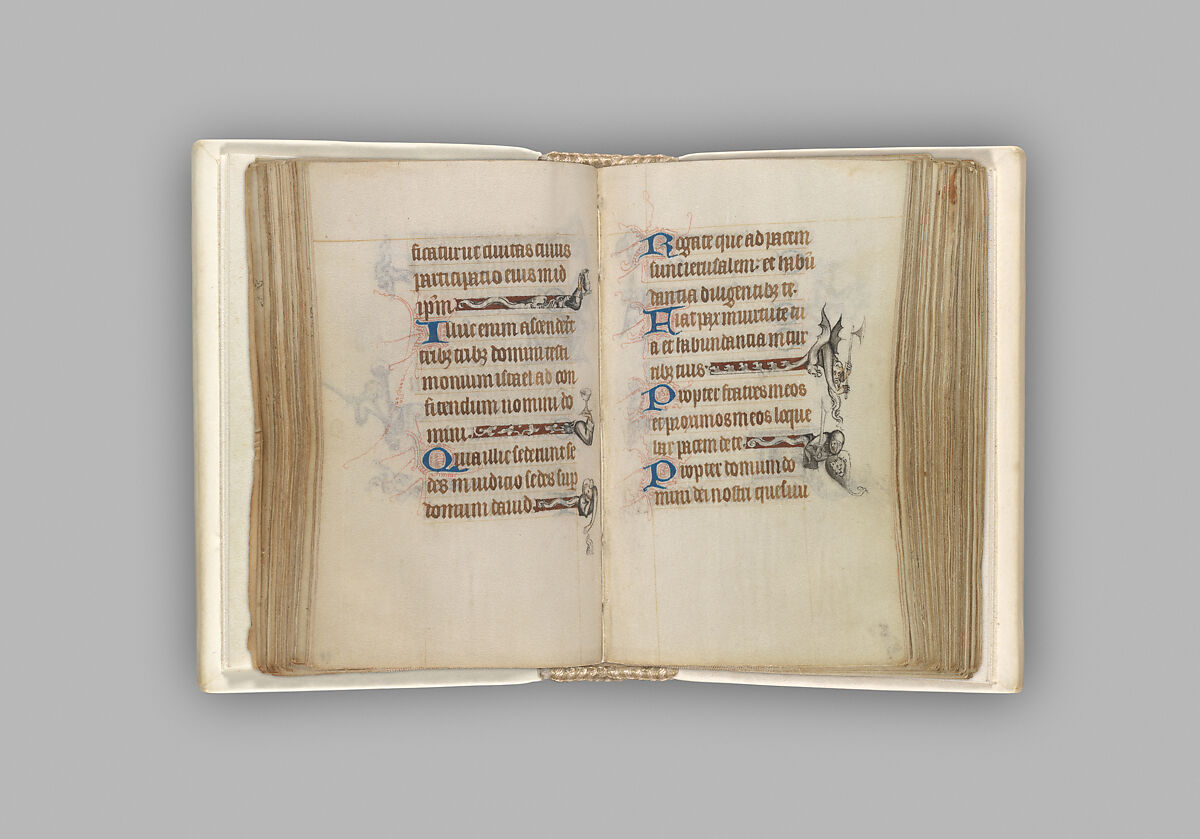 ficatur ut civitas cuius
participatio eius in id
ip̄m.
Illuc enim ascender̄t
tribꝫ tribꝫ domini testi
monium israel ad con
fitendum nomini do
mini.
Quia illic sederunt se
des in iudicio sedes sup̄
domum dauid.
Rogate que ad pacem
sunt ierusalem: et habū
dantia diligentibꝫ te.
Fiat pax in uirtute tu
a et habundantia in tur
ribꝫ tuis.
Propter fratres meos
et proximos meos loque
bar pacem de te.
Propter domum do
mini dei nostri quesiui